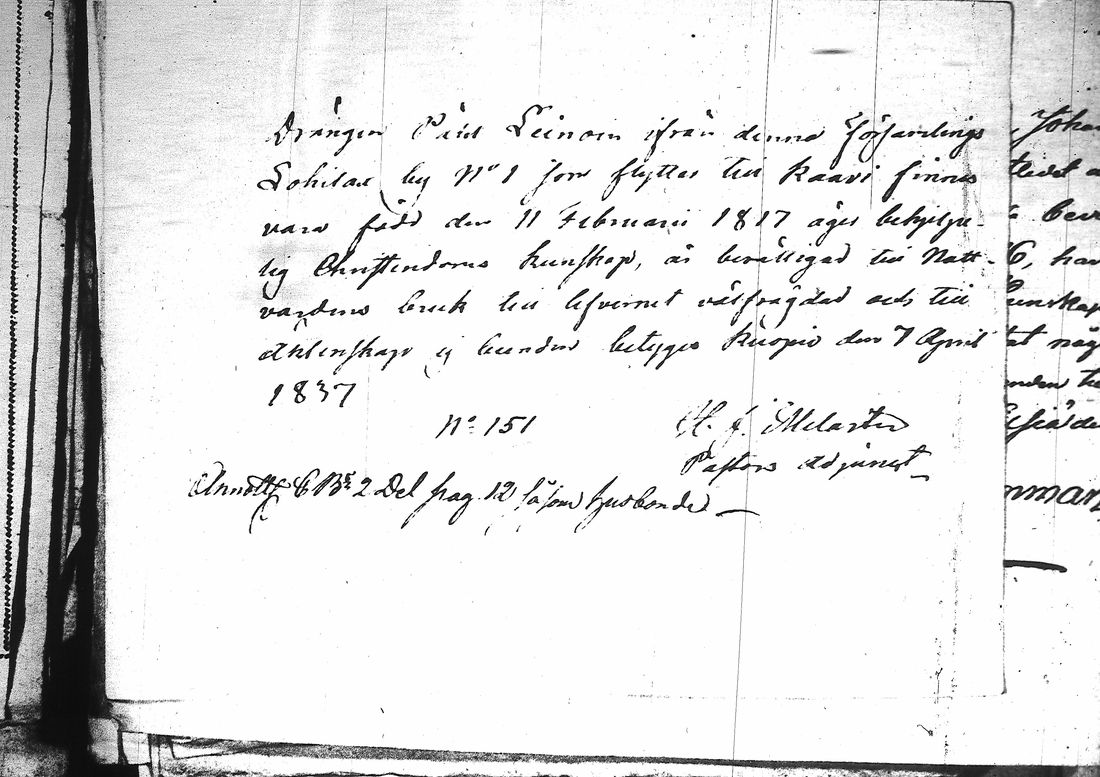 Drängen Påhl Leinoin ifrån denna Församlings
Lohilax by Nº 1 som flyttar till Kaavi finnes
vara född den 11 Februarii 1817 äger behjelpe-
lig Christendoms kunskap, är berättigad till Natt-
vardens bruk till lefvernet välfrägdad och till
äktenskap ej bunden betygar Kuopio den 7 April
1837
Nº 151
H. J. Melartin
Pastors Adjunct
Annott C Br 2 Del pag. 12 såsom husbonde
Joha
tledt
bevi
6, har
unskap
tat någ
unden til